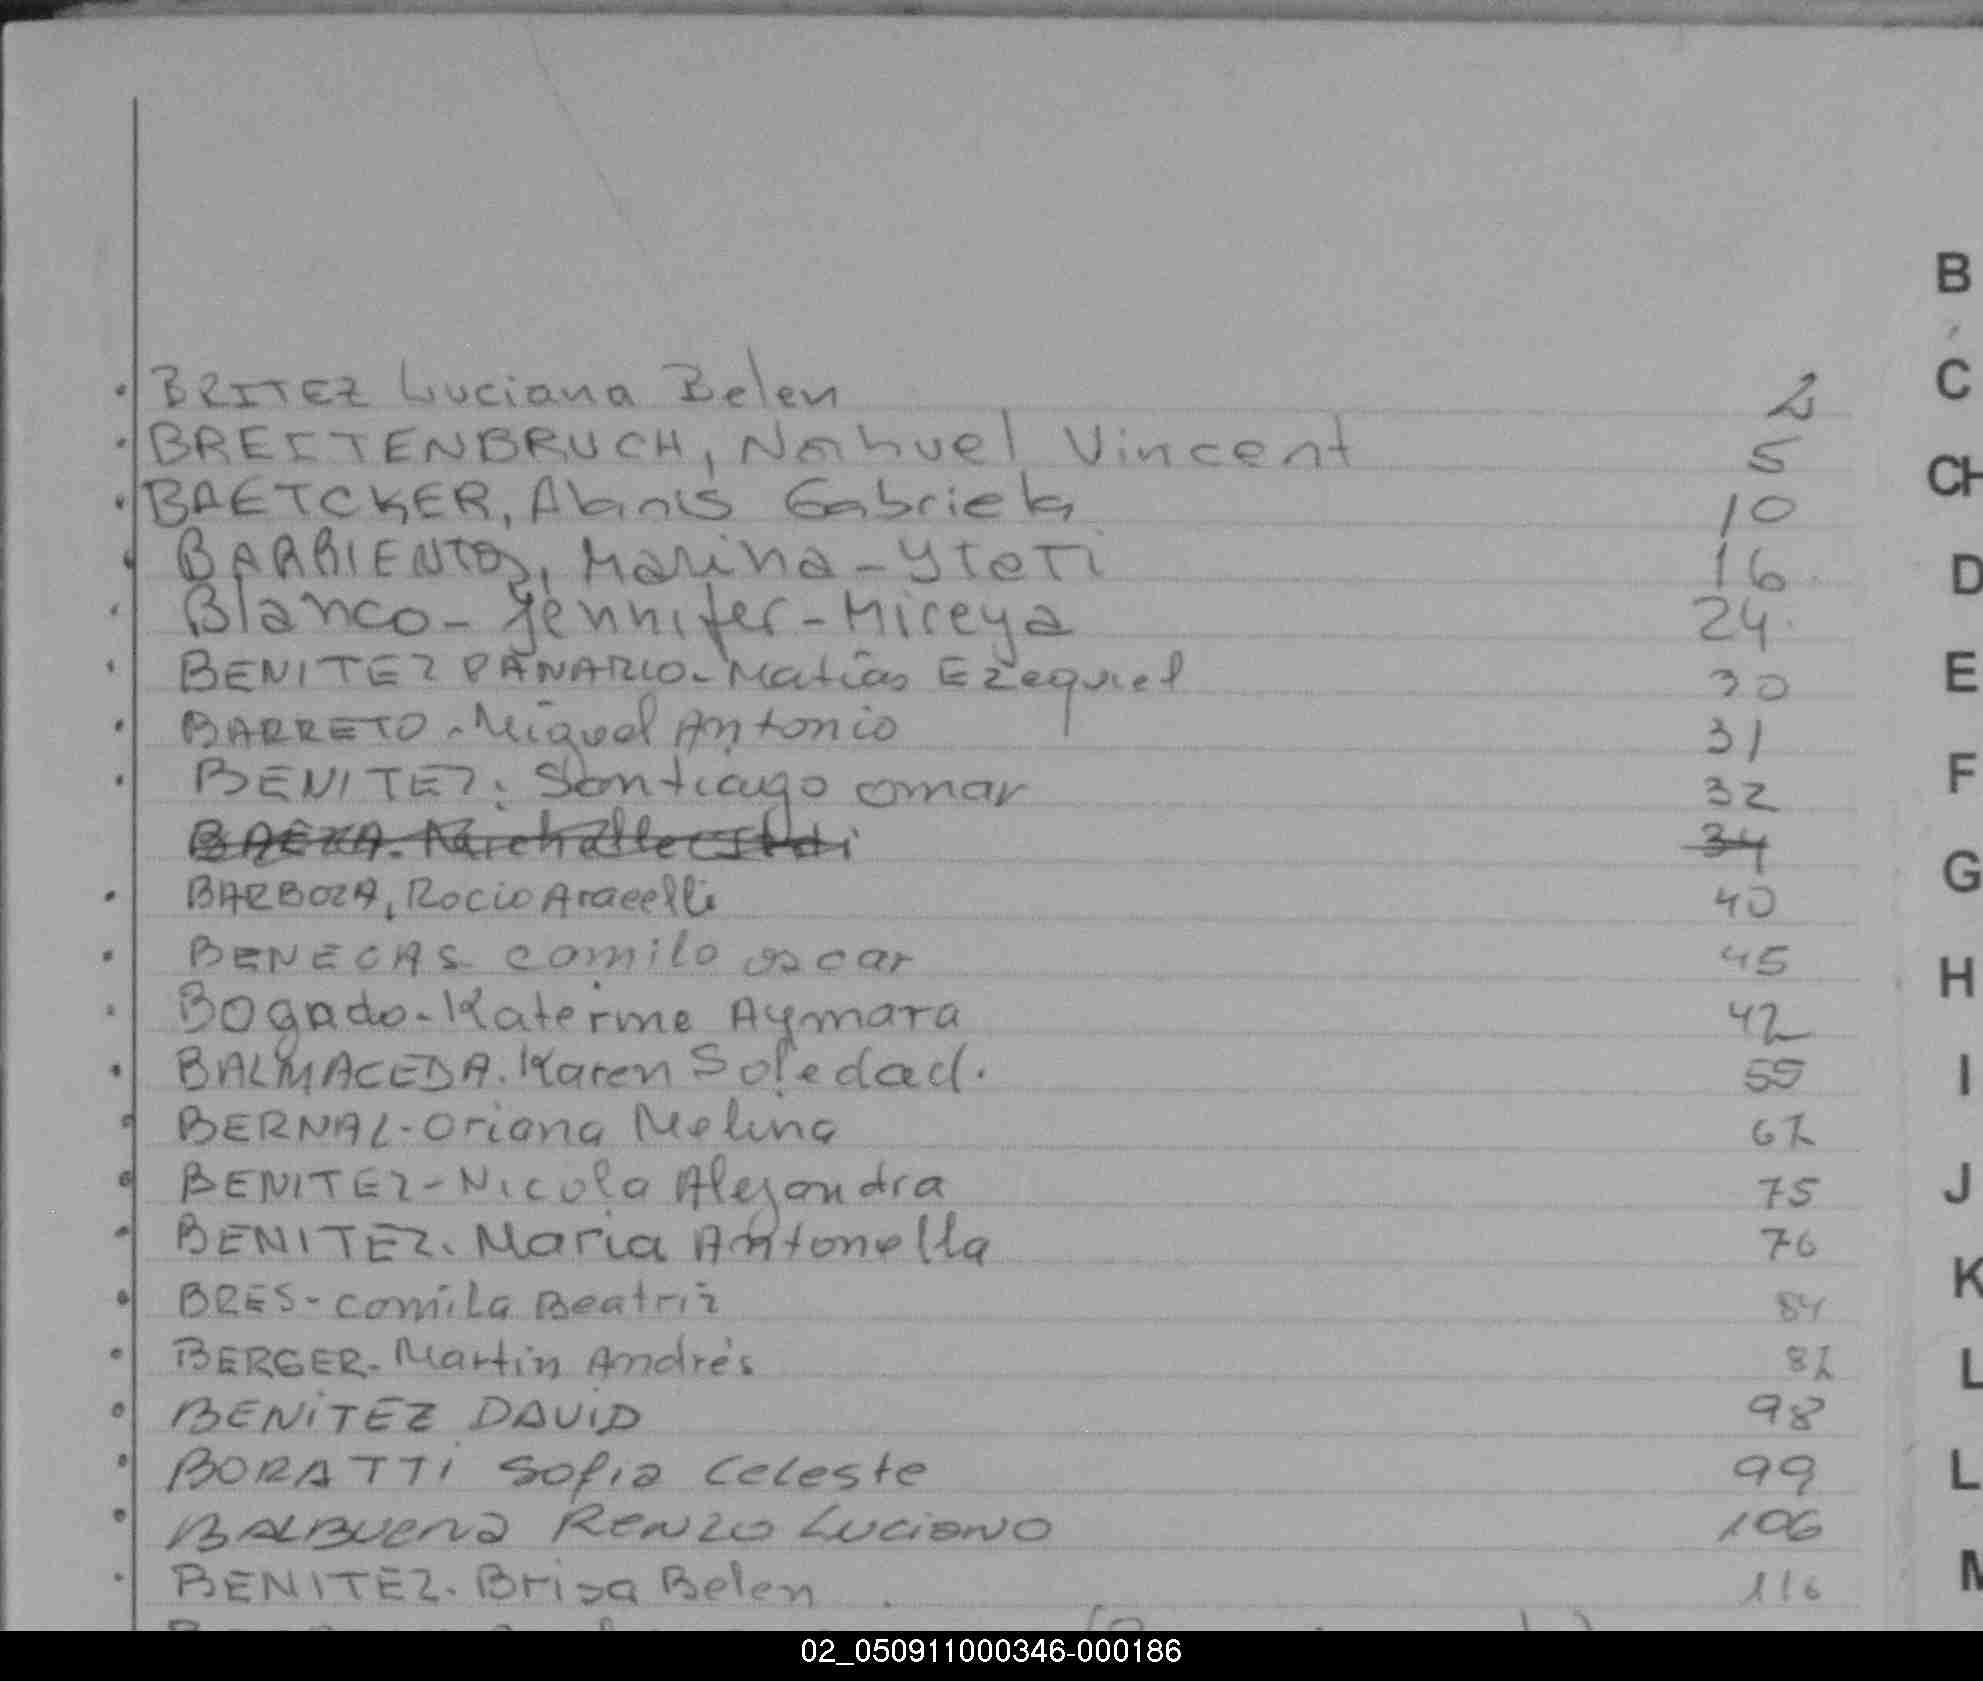 B
C
BRITEZ Luciana Belen 2
BREITENBRUCH, Nahuel Vincent 5
CH
BAETCKER, Alanis Gabriela 10
BARRIENTOS, Marina-Yteti 16
D
Blanco-Jennifer-Mireya 24
BENITEZ PANARIO-Matías Ezequiel 30
E
BARRETO-Miguel Antonio 31
BENITEZ. Santiago omar 32
F
BAEZA. 34
G
BARBOZA, Rocio Aracelli 40
BENEGAS camilo oscar 45
H
Bogado-Katerine Aymara 42
BALMACEDA. Karen Soledad. 55
I
BERNAL-Oriana Melina 62
BENITEZ-Nicola Alejandra 75
J
BENITEZ. Maria Antonella 76
K
BRES-camila Beatriz 84
BERGER-Martín Andrés 82
L
BENITEZ DAVID 98
BORATTI Sofia Celeste 99
L
BALBUENA RENZO LUCIANO 106
BENITEZ. Brisa Belen 116
M
02_050911000346-000186